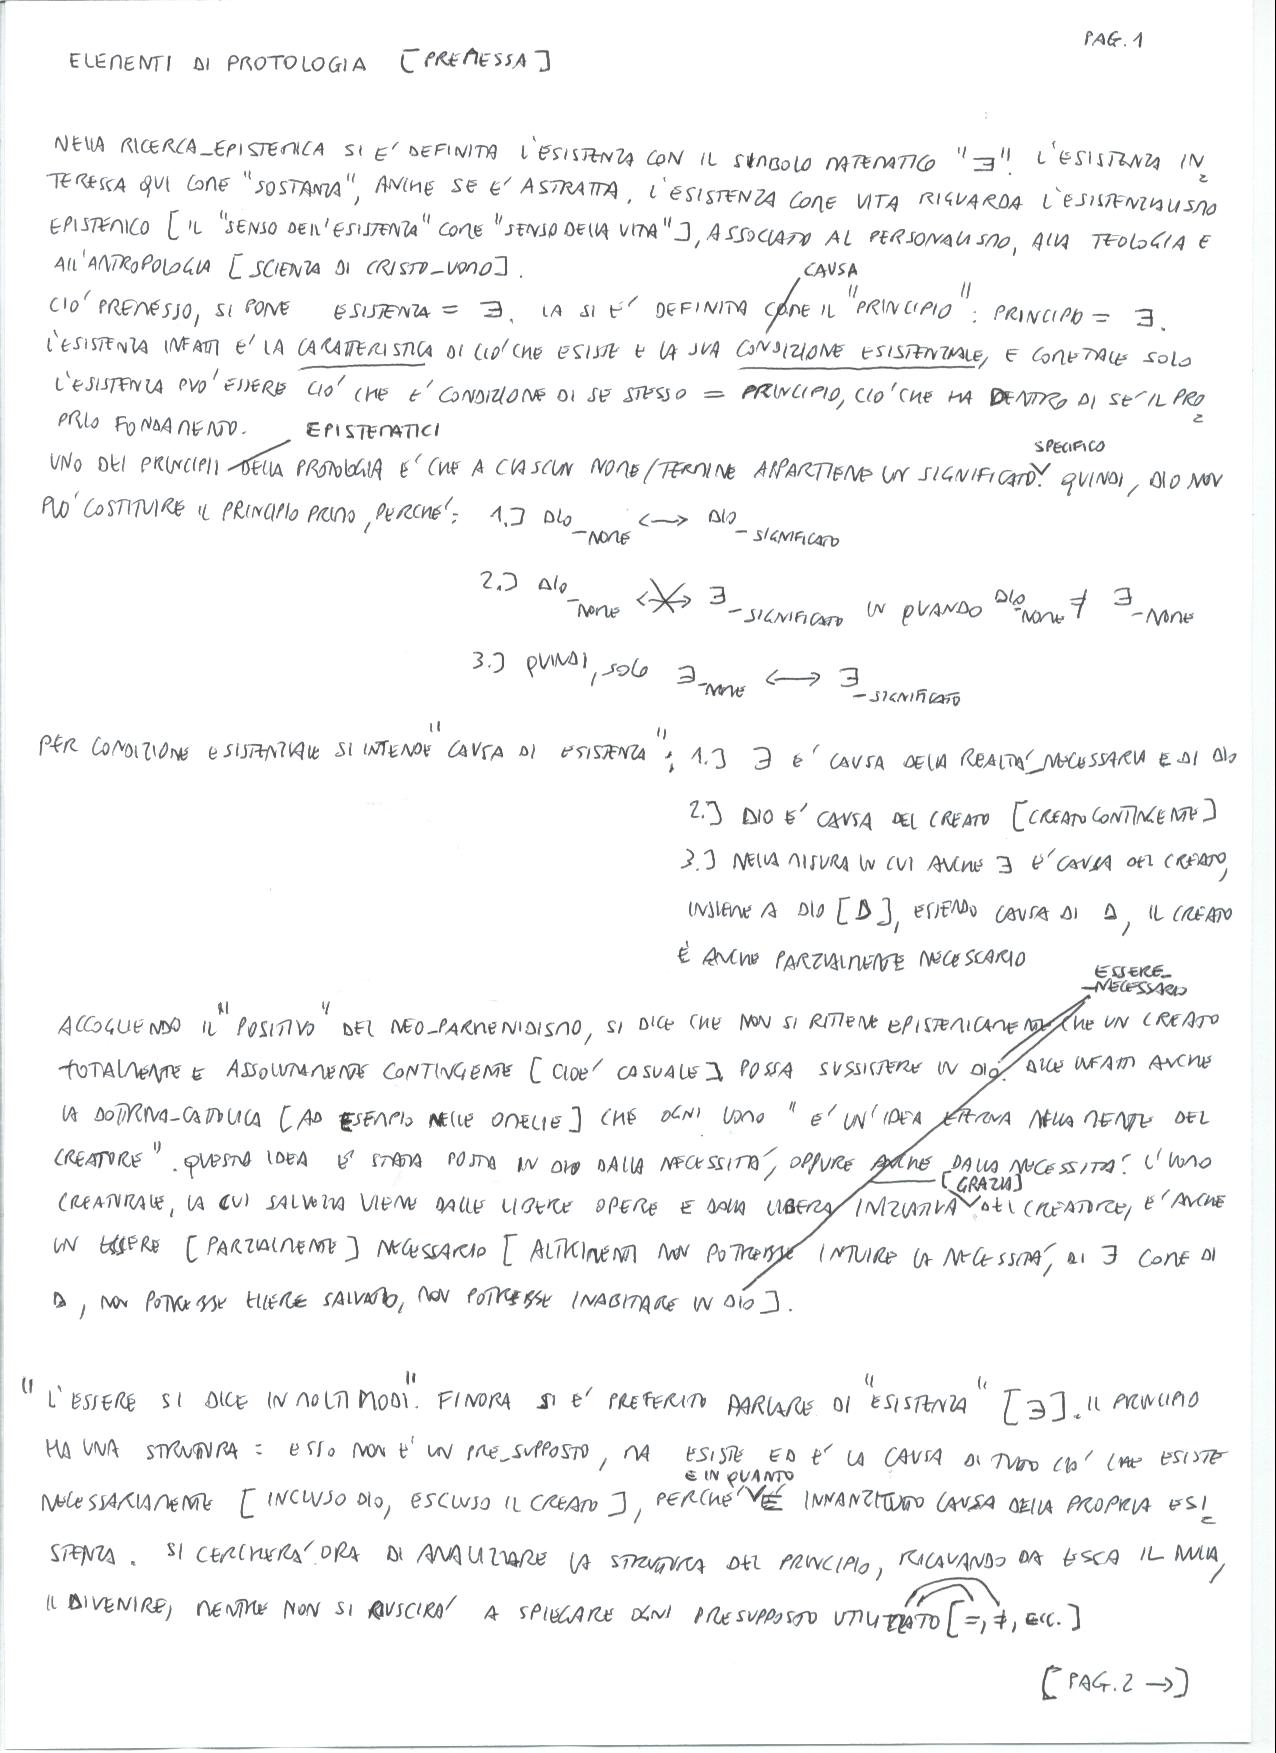 PAG. 1
ELEMENTI DI PROTOLOGIA [PREMESSA]
NELLA RICERCA_EPISTEMICA SI E' DEFINITA L'ESISTENZA CON IL SIMBOLO MATEMATICO "∃". L'ESISTENZA IN=
TERESSA QUI COME "SOSTANZA", ANCHE SE E' ASTRATTA. L'ESISTENZA COME VITA RIGUARDA L'ESISTENZIALISMO
EPISTEMICO [IL "SENSO DELL'ESISTENZA" COME "SENSO DELLA VITA"], ASSOCIATO AL PERSONALISMO, ALLA TEOLOGIA E
ALL'ANTROPOLOGIA [SCIENZA DI CRISTO_UOMO].
CAUSA
CIO' PREMESSO, SI PONE ESISTENZA = ∃. LA SI E' DEFINITA COME IL "PRINCIPIO": PRINCIPIO = ∃.
L'ESISTENZA INFATTI E' LA CARATTERISTICA DI CIO' CHE ESISTE E LA SUA CONDIZIONE ESISTENZIALE, E COME TALE SOLO
L'ESISTENZA PUO' ESSERE CIO' CHE E' CONDIZIONE DI SE STESSO = PRINCIPIO, CIO' CHE HA DENTRO DI SE' IL PRO=
PRIO FONDAMENTO.
EPISTEMATICI
SPECIFICO
UNO DEI PRINCIPII DELLA PROTOLOGIA E' CHE A CIASCUN NOME/TERMINE APPARTIENE UN SIGNIFICATO. QUINDI, DIO NON
PUO' COSTITUIRE IL PRINCIPIO PRIMO, PERCHE': 1.] DIO_NOME <—> DIO_SIGNIFICATO
2.] DIO_NOME <-X-> ∃_SIGNIFICATO IN QUANDO DIO_NOME ≠ ∃_NOME
3.] QUINDI, SOLO ∃_NOME <—> ∃_SIGNIFICATO
PER CONDIZIONE ESISTENZIALE SI INTENDE "CAUSA DI ESISTENZA"; 1.] ∃ E' CAUSA DELLA REALTA'_NECESSARIA E DI DIO
2.] DIO E' CAUSA DEL CREATO [CREATO CONTINGENTE]
3.] NELLA MISURA IN CUI ANCHE ∃ E' CAUSA DEL CREATO,
INSIEME A DIO [D], ESSENDO CAUSA DI D, IL CREATO
E' ANCHE PARZIALMENTE NECESSARIO
ESSERE_
_NECESSARIO
ACCOGLIENDO IL "POSITIVO" DEL NEO_PARMENIDISMO, SI DICE CHE NON SI RITIENE EPISTEMICAMENTE CHE UN CREATO
TOTALMENTE E ASSOLUTAMENTE CONTINGENTE [CIOE' CASUALE] POSSA SUSSISTERE IN DIO. DICE INFATTI ANCHE
LA DOTTRINA_CATTOLICA [AD ESEMPIO NELLE OMELIE] CHE OGNI UOMO "E' UN'IDEA ETERNA NELLA MENTE DEL
CREATORE". QUESTA IDEA E' STATA POSTA IN DIO DALLA NECESSITA', OPPURE ANCHE DALLA NECESSITA'. L'UOMO
[GRAZIA]
CREATURALE, LA CUI SALVEZZA VIENE DALLE LIBERE OPERE E DALLA LIBERA INIZIATIVA DEL CREATORE, E' ANCHE
UN ESSERE [PARZIALMENTE] NECESSARIO [ALTRIMENTI NON POTREBBE INTUIRE LA NECESSITA', DI ∃ COME DI
D, NON POTREBBE ESSERE SALVATO, NON POTREBBE INABITARE IN DIO].
"L'ESSERE SI DICE IN MOLTI MODI". FINORA SI E' PREFERITO PARLARE DI "ESISTENZA" [∃]. IL PRINCIPIO
HA UNA STRUTTURA: ESSO NON E' UN PRE_SUPPOSTO, MA ESISTE ED E' LA CAUSA DI TUTTO CIO' CHE ESISTE
E IN QUANTO
NECESSARIAMENTE [INCLUSO DIO, ESCLUSO IL CREATO], PERCHE' E' INNANZITUTTO CAUSA DELLA PROPRIA ESI=
STENZA. SI CERCHERA' ORA DI ANALIZZARE LA STRUTTURA DEL PRINCIPIO, RICAVANDO DA ESSA IL NULLA,
IL DIVENIRE, MENTRE NON SI RIUSCIRA' A SPIEGARE OGNI PRESUPPOSTO UTILIZZATO [=, ≠, ECC.]
[PAG. 2 →]